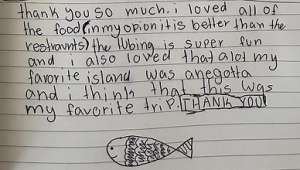 thank you so much. i loved all of
the food (in my opionit is better than the
restraunts) the tubing is super fun
and i also loved that alot my
faverite island was anegotta
and i think that this was
my favorite trip. THANK YOU